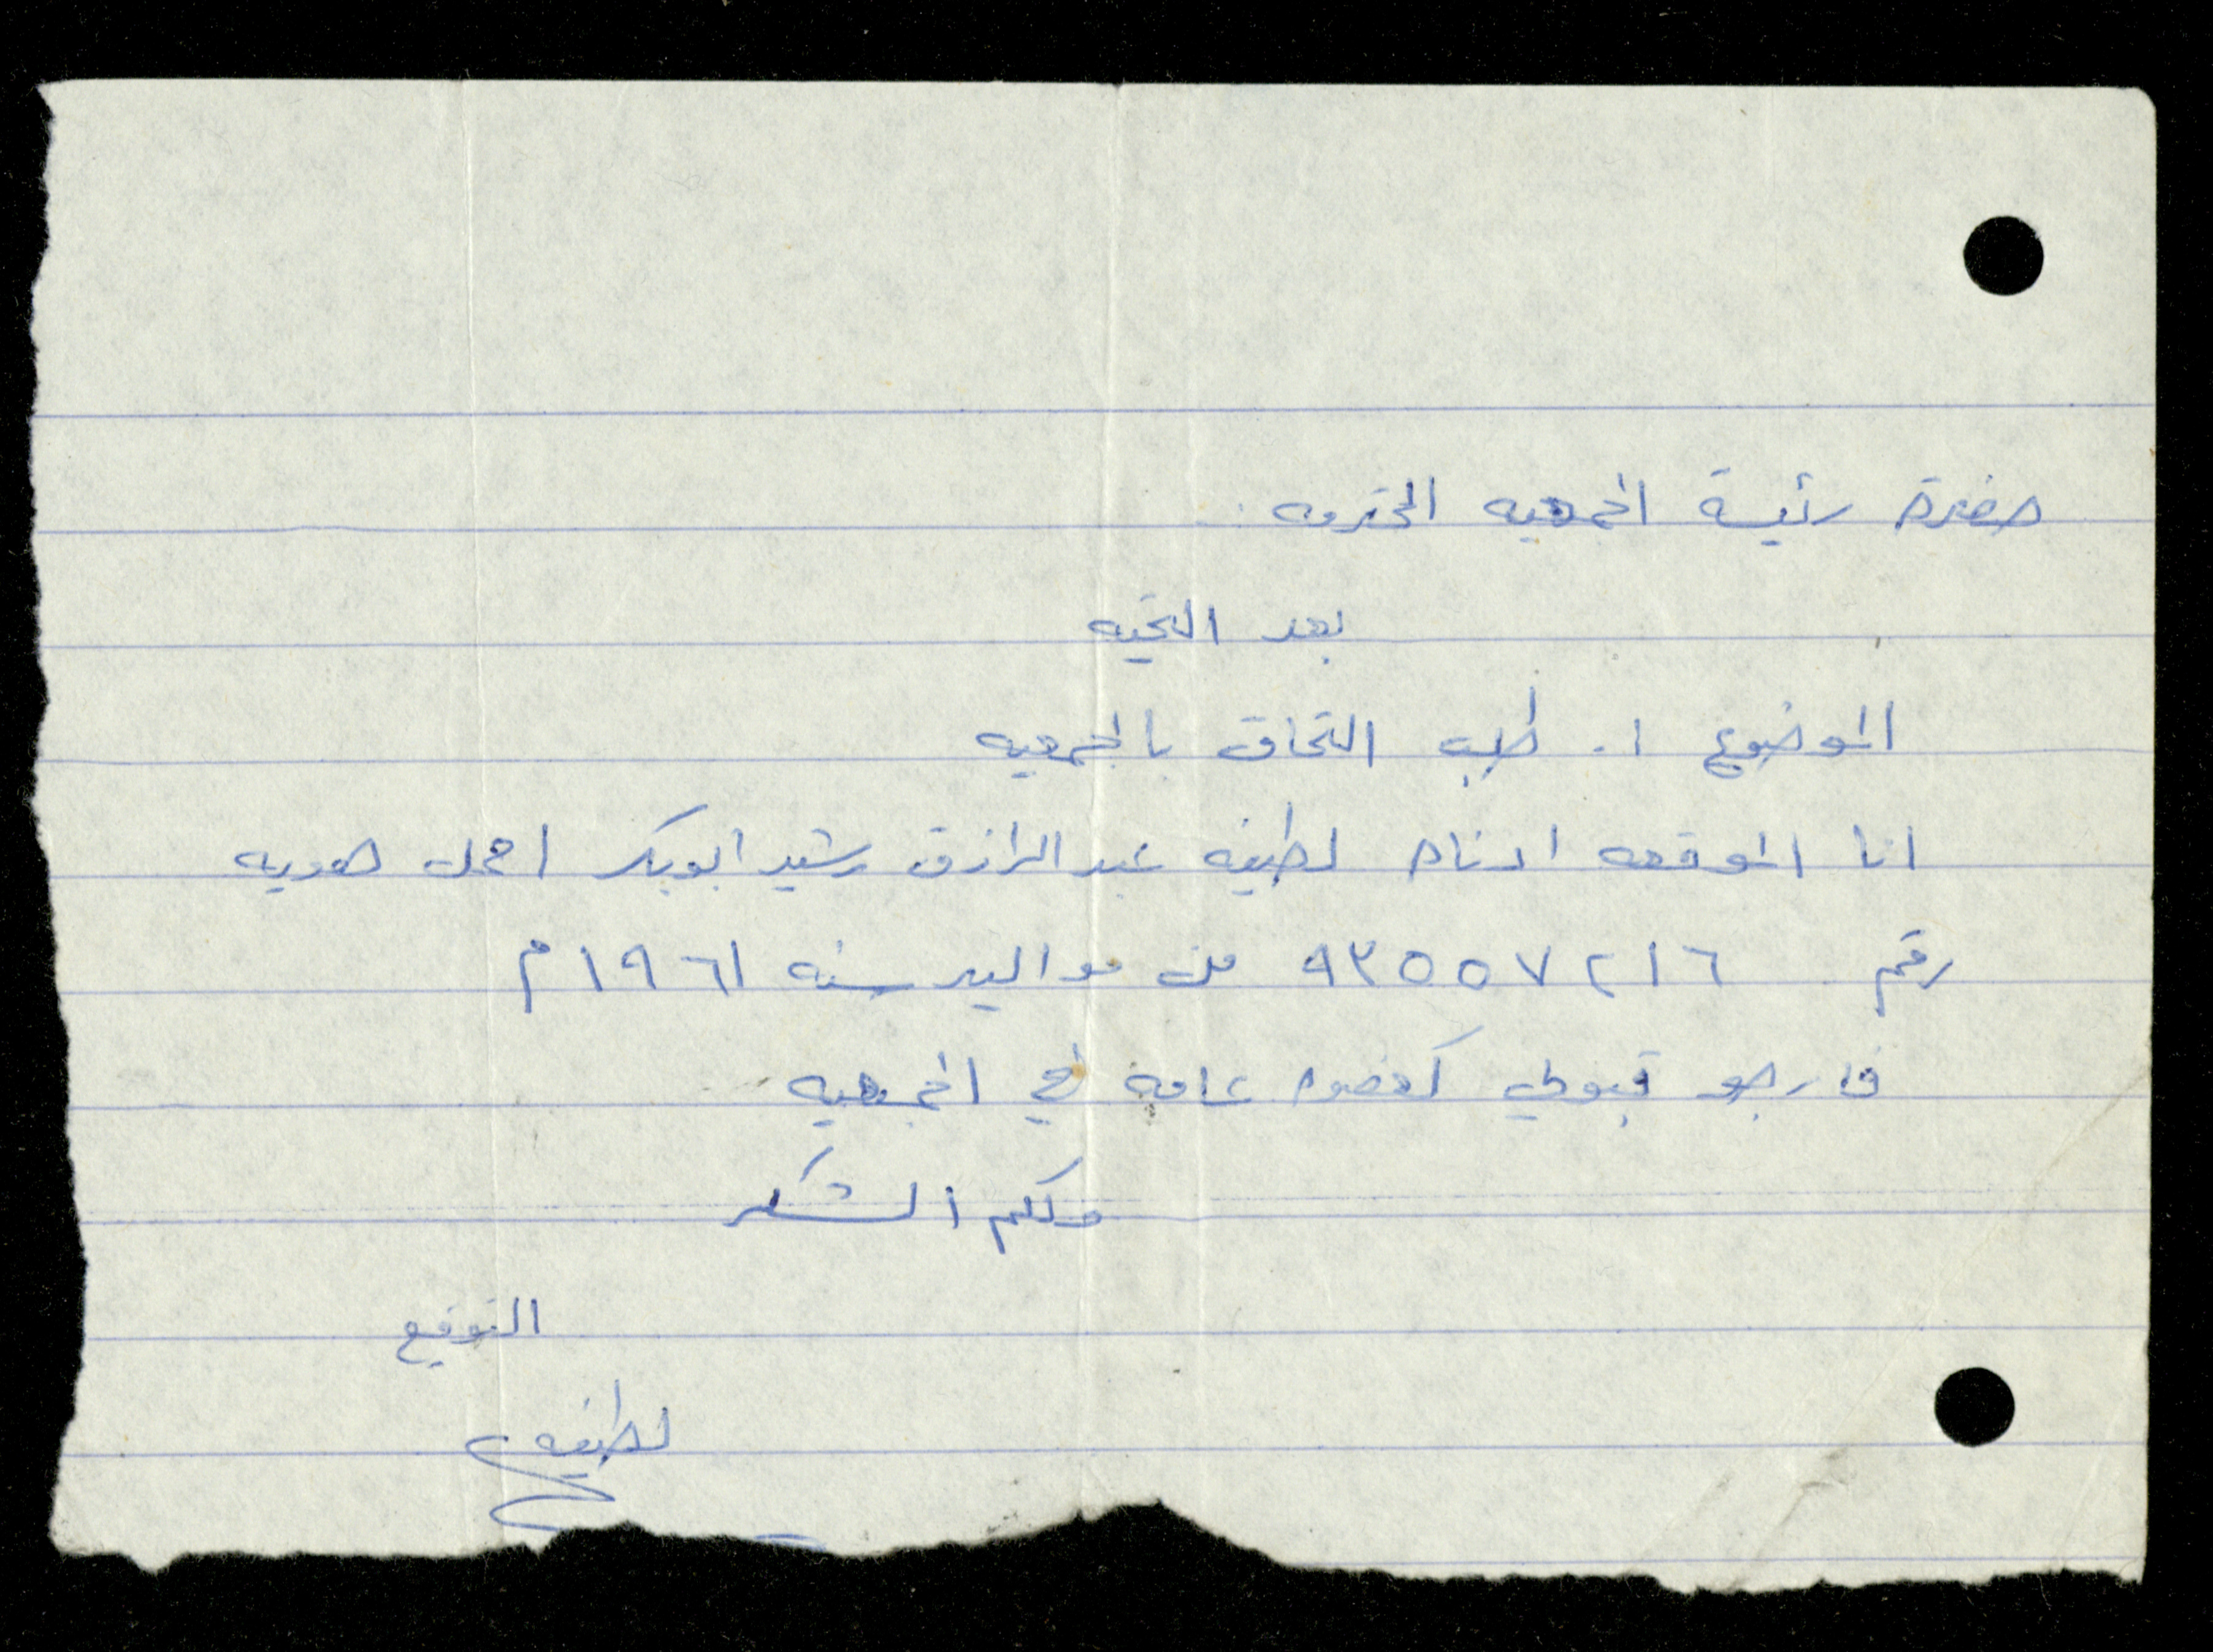 حضرة رئيسة الجمعيه المحترمه .
بعد التحيه
الموضوع :. طلب التحاق بالجمعيه
انا الموقعه ادناه لطيفه عبد الرازق رشيد ابوبكر احمل هويه
رقم ٩٣٥٥٧٢١٦ من مواليد سنه ١٩٦١م
فارجو قبولي كعضوه عامه في الجمعيه
ولكم الشكر
التوقيع
لطيفه